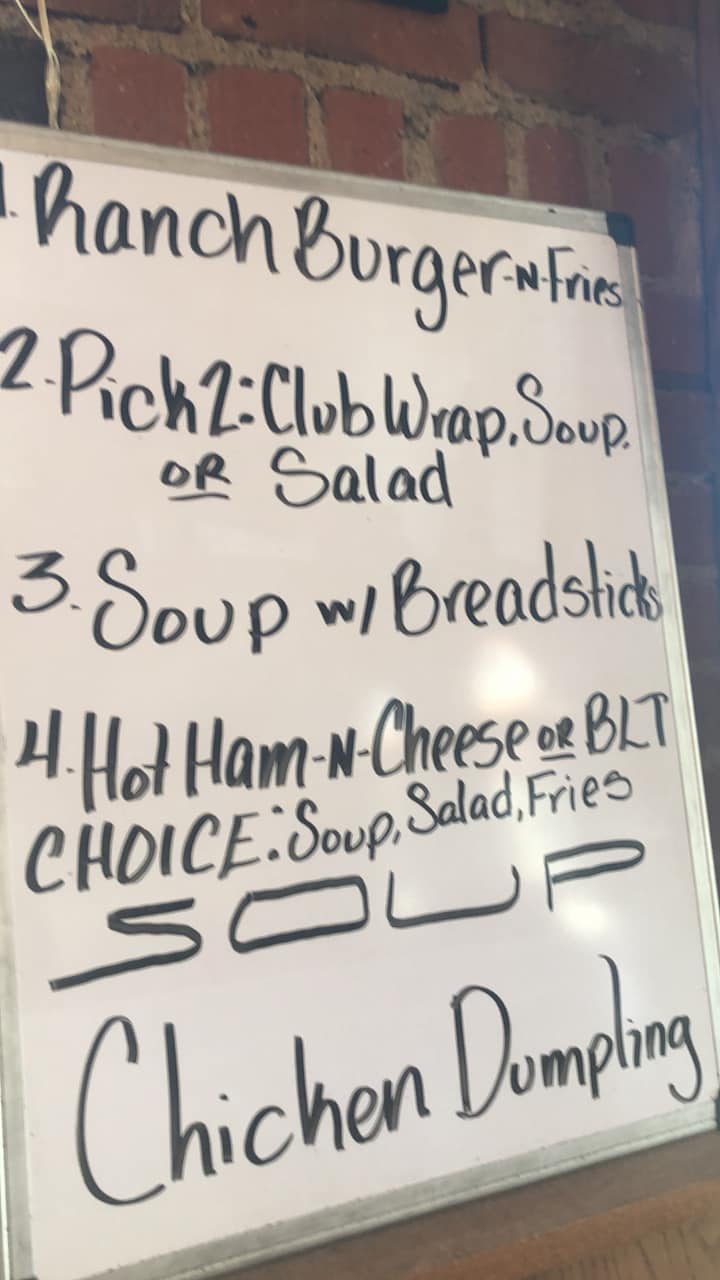 1. Ranch Burger-N-Fries
2. Pick 2: Club Wrap, Soup.
OR Salad
3. Soup w/ Breadsticks
4. Hot Ham-N-Cheese OR BLT
CHOICE: Soup, Salad, Fries
SOUP
Chicken Dumpling